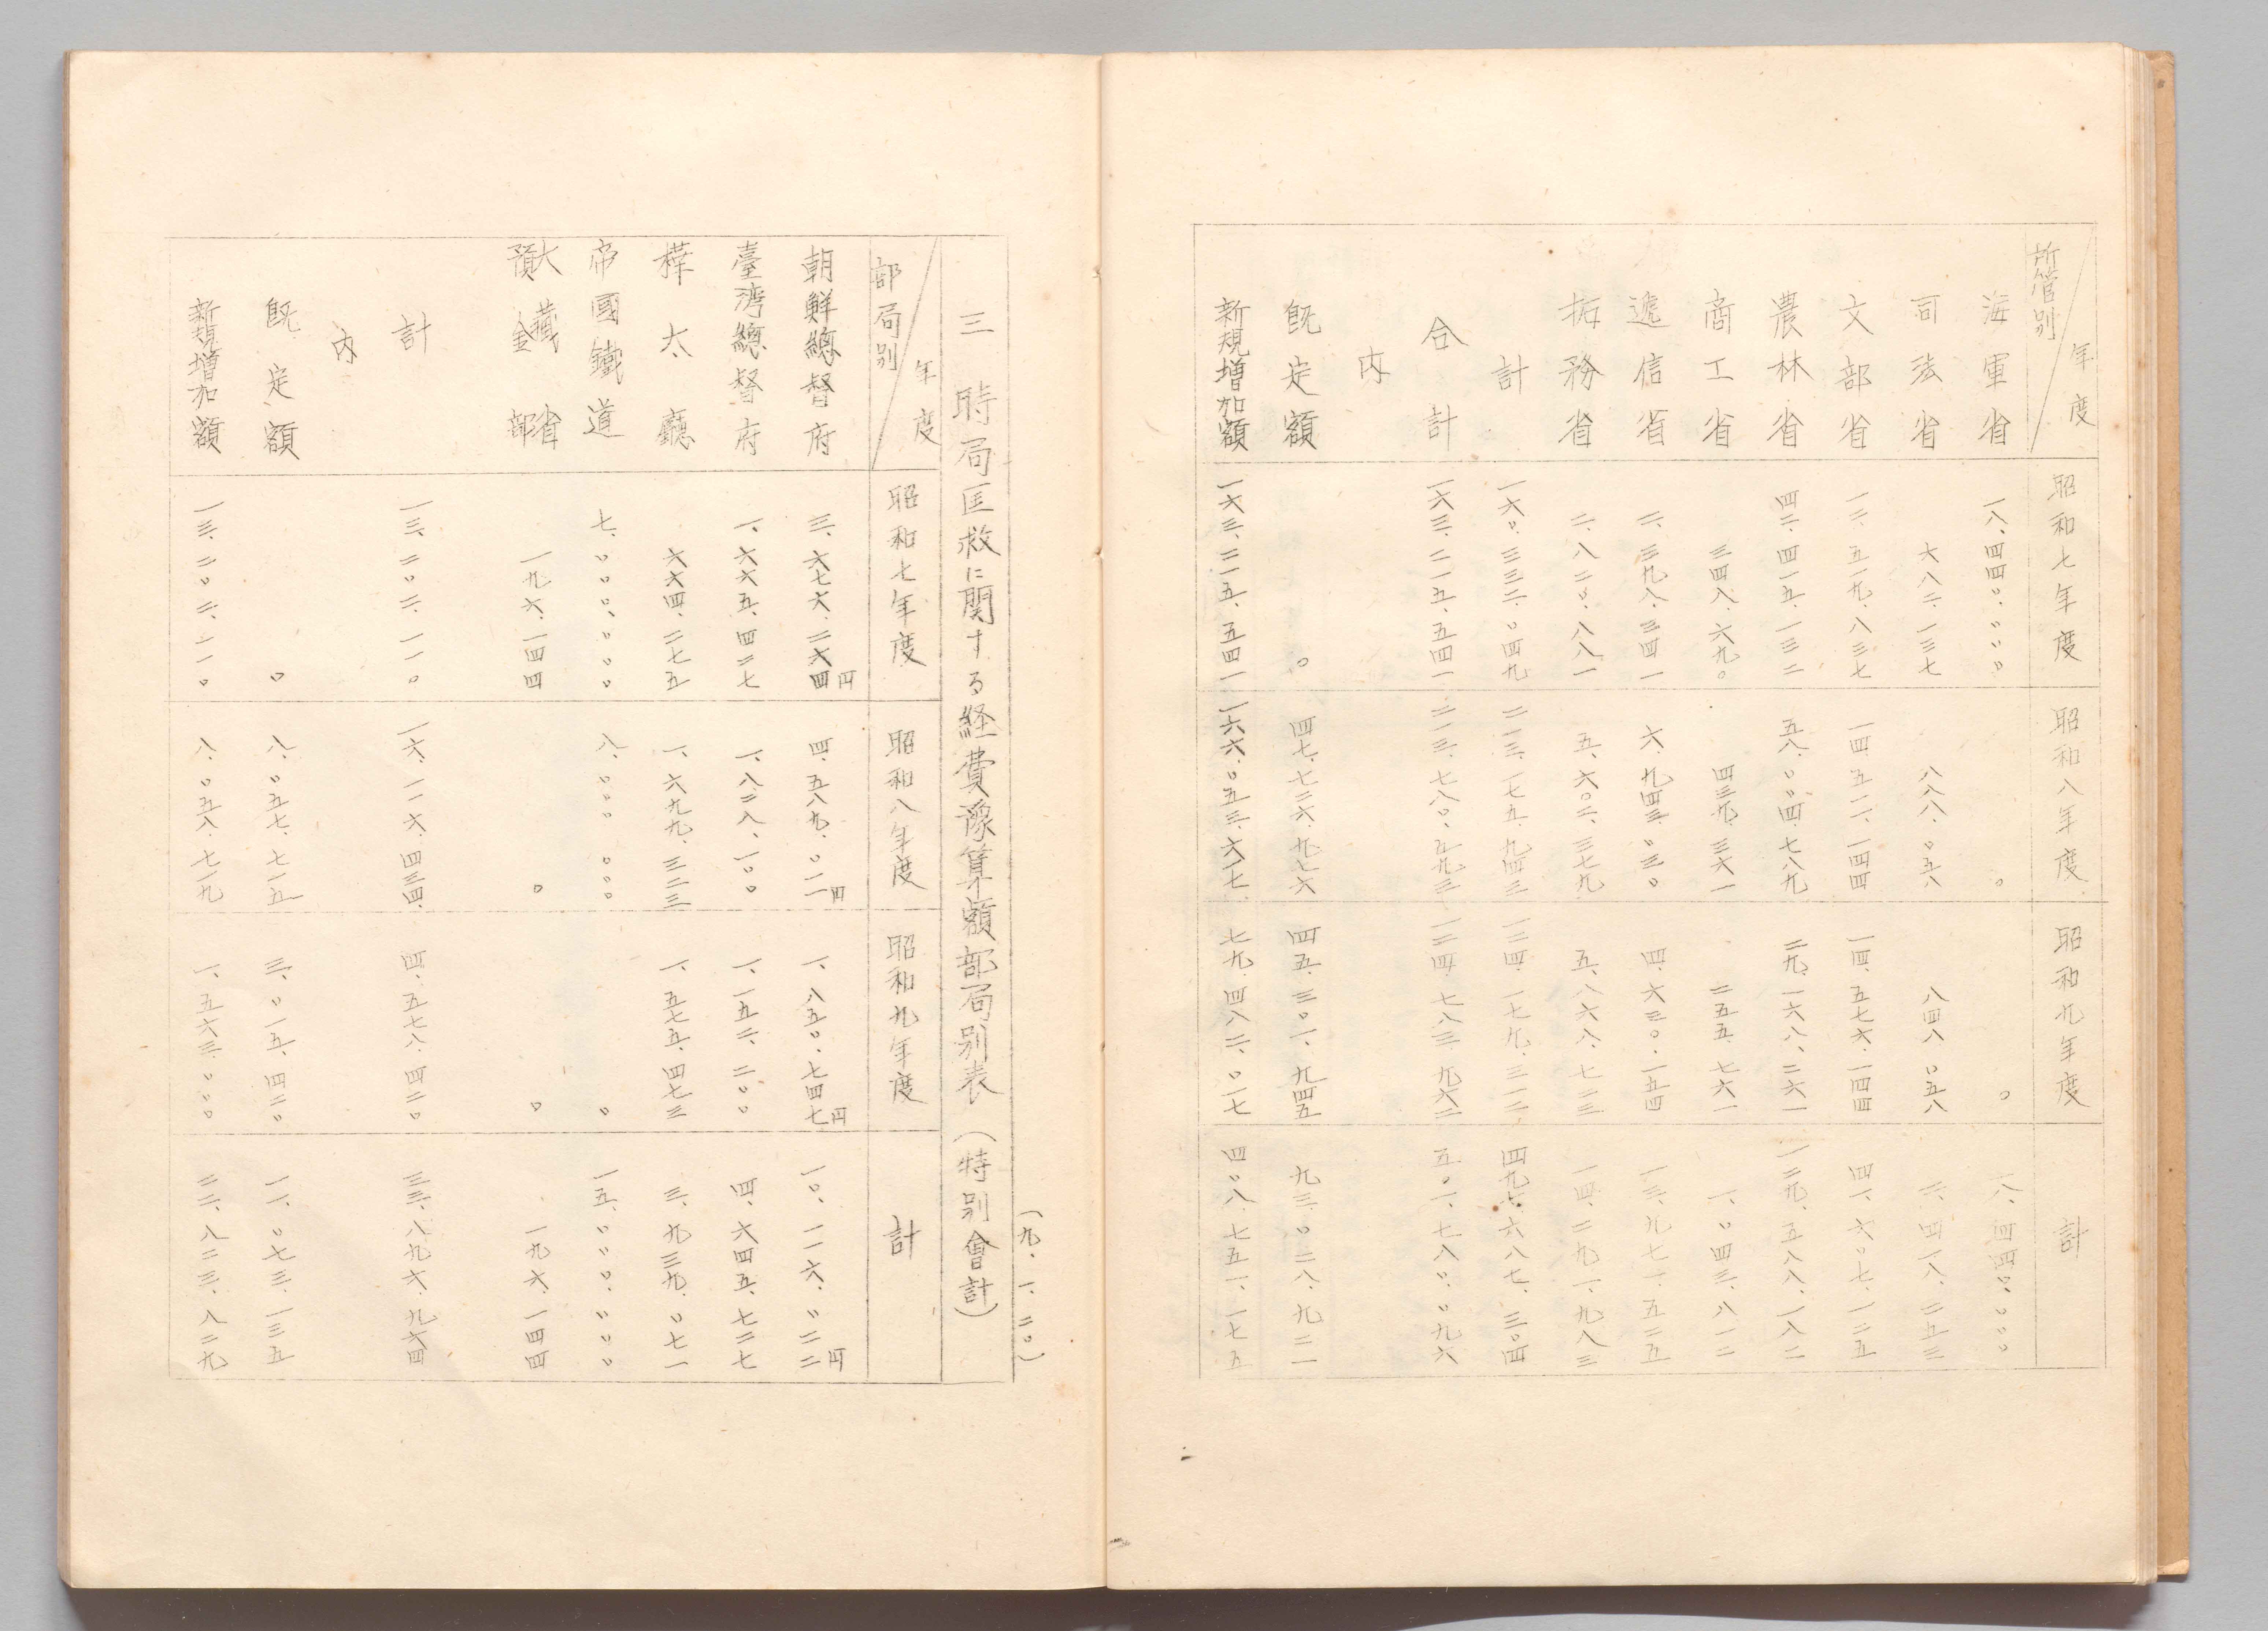 所管別 年度 昭和七年度 昭和八年度 昭和九年度 計
海軍省 一八、四四〇、〇〇〇 〇 〇 一八、四四〇、〇〇〇
司法省 六八二、一三七 八八八、〇五八 八四八、〇五八 二、四一八、二五三
文部省 一二、五一九、八三七 一四、五一一、一四四 一四、五七六、一四四 四一、六〇七、一二五
農林省 四二、四一五、一三二 五八、〇〇四、七八九 二九、一六八、二六一 一二九、五八八、一八二
商工省 三四八、六九〇 四三九、三六一 二五五、七六一 一、〇四三、八一二
遞信省 二、三九八、三四一 六、九四三、〇三〇 四、六三〇、一五四 一三、九七一、五二五
拓務省 二、八二〇、八八一 五、六〇二、三七九 五、八六八、七二三 一四、二九一、九八三
計 一六〇、三三二、〇四九 二一三、一七五、九四三 一二四、一七九、三一二 四九七、六八七、三〇四
合計 一六三、二一五、五四一 二一三、七八〇、五九三 一二四、七八三、九六二 五〇一、七八〇、〇九六
内
既定額 〇 四七、七二六、九七六 四五、三〇一、九四五 九三、〇二八、九二一
新規増加額 一六三、二一五、五四一 一六六、〇五三、六一七 七九、四八二、〇一七 四〇八、七五一、一七五
（九、一、二〇）
三 時局匡救に関する経費豫算額部局別表（特別會計）
部局別 年度 昭和七年度 昭和八年度 昭和九年度 計
朝鮮總督府 三、六七六、二六四円 四、五八九、〇一一円 一、八五〇、七四七円 一〇、一一六、〇二二円
臺湾總督府 一、六六五、四二七 一、八二八、一〇〇 一、一五二、二〇〇 四、六四五、七二七
樺太廳 六六四、二七五 一、六九九、三二三 一、五七五、四七三 三、九三九、〇七一
帝國鐵道 七、〇〇〇、〇〇〇 八、〇〇〇、〇〇〇 〇 一五、〇〇〇、〇〇〇
大藏省
預金部 一九六、一四四 〇 〇 一九六、一四四
計 一三、二〇二、一一〇 一六、一一六、四三四 四、五七八、四二〇 三三、八九六、九六四
内
既定額 〇 八、〇五七、七一五 三、〇一五、四二〇 一一、〇七三、一三五
新規増加額 一三、二〇二、一一〇 八、〇五八、七一九 一、五六三、〇〇〇 二二、八二三、八二九